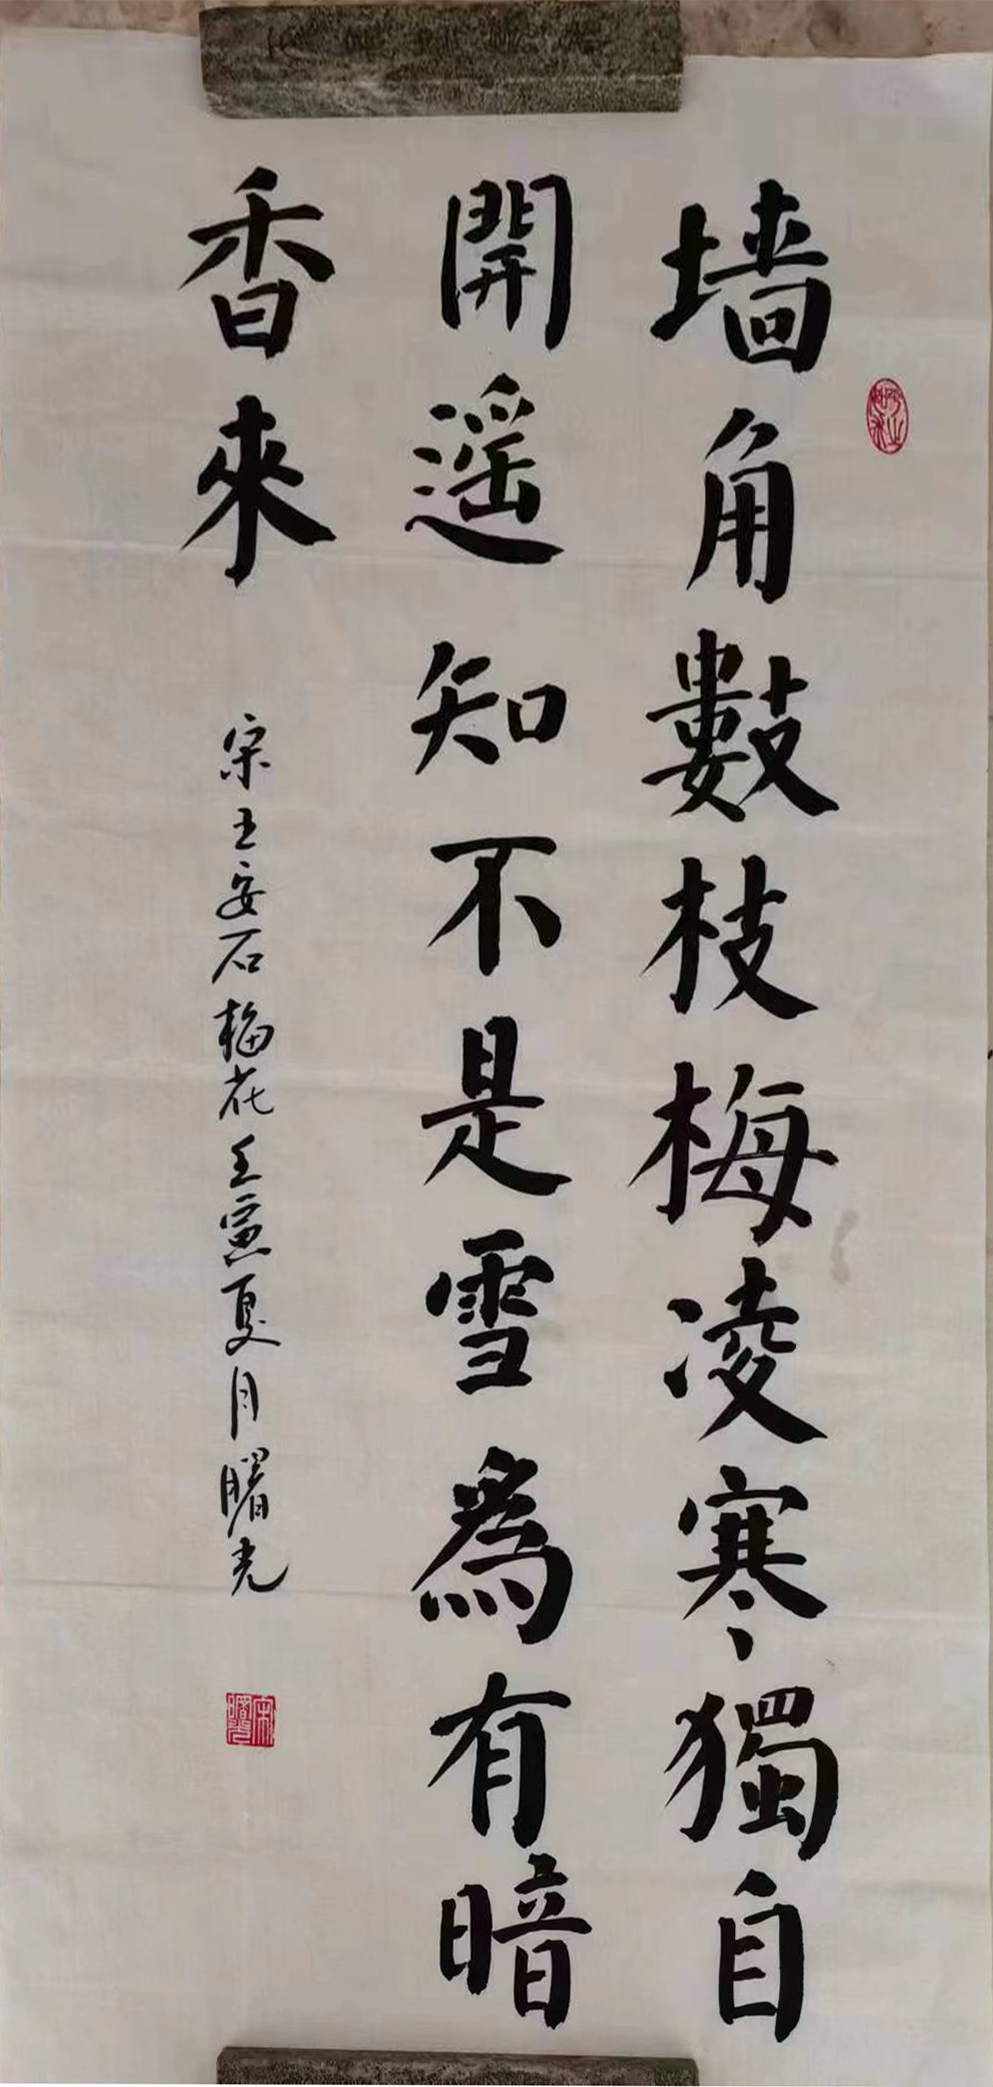 墙角數枝梅凌寒獨自
開遥知不是雪爲有暗
香來
宋王安石梅花壬寅夏月曙光